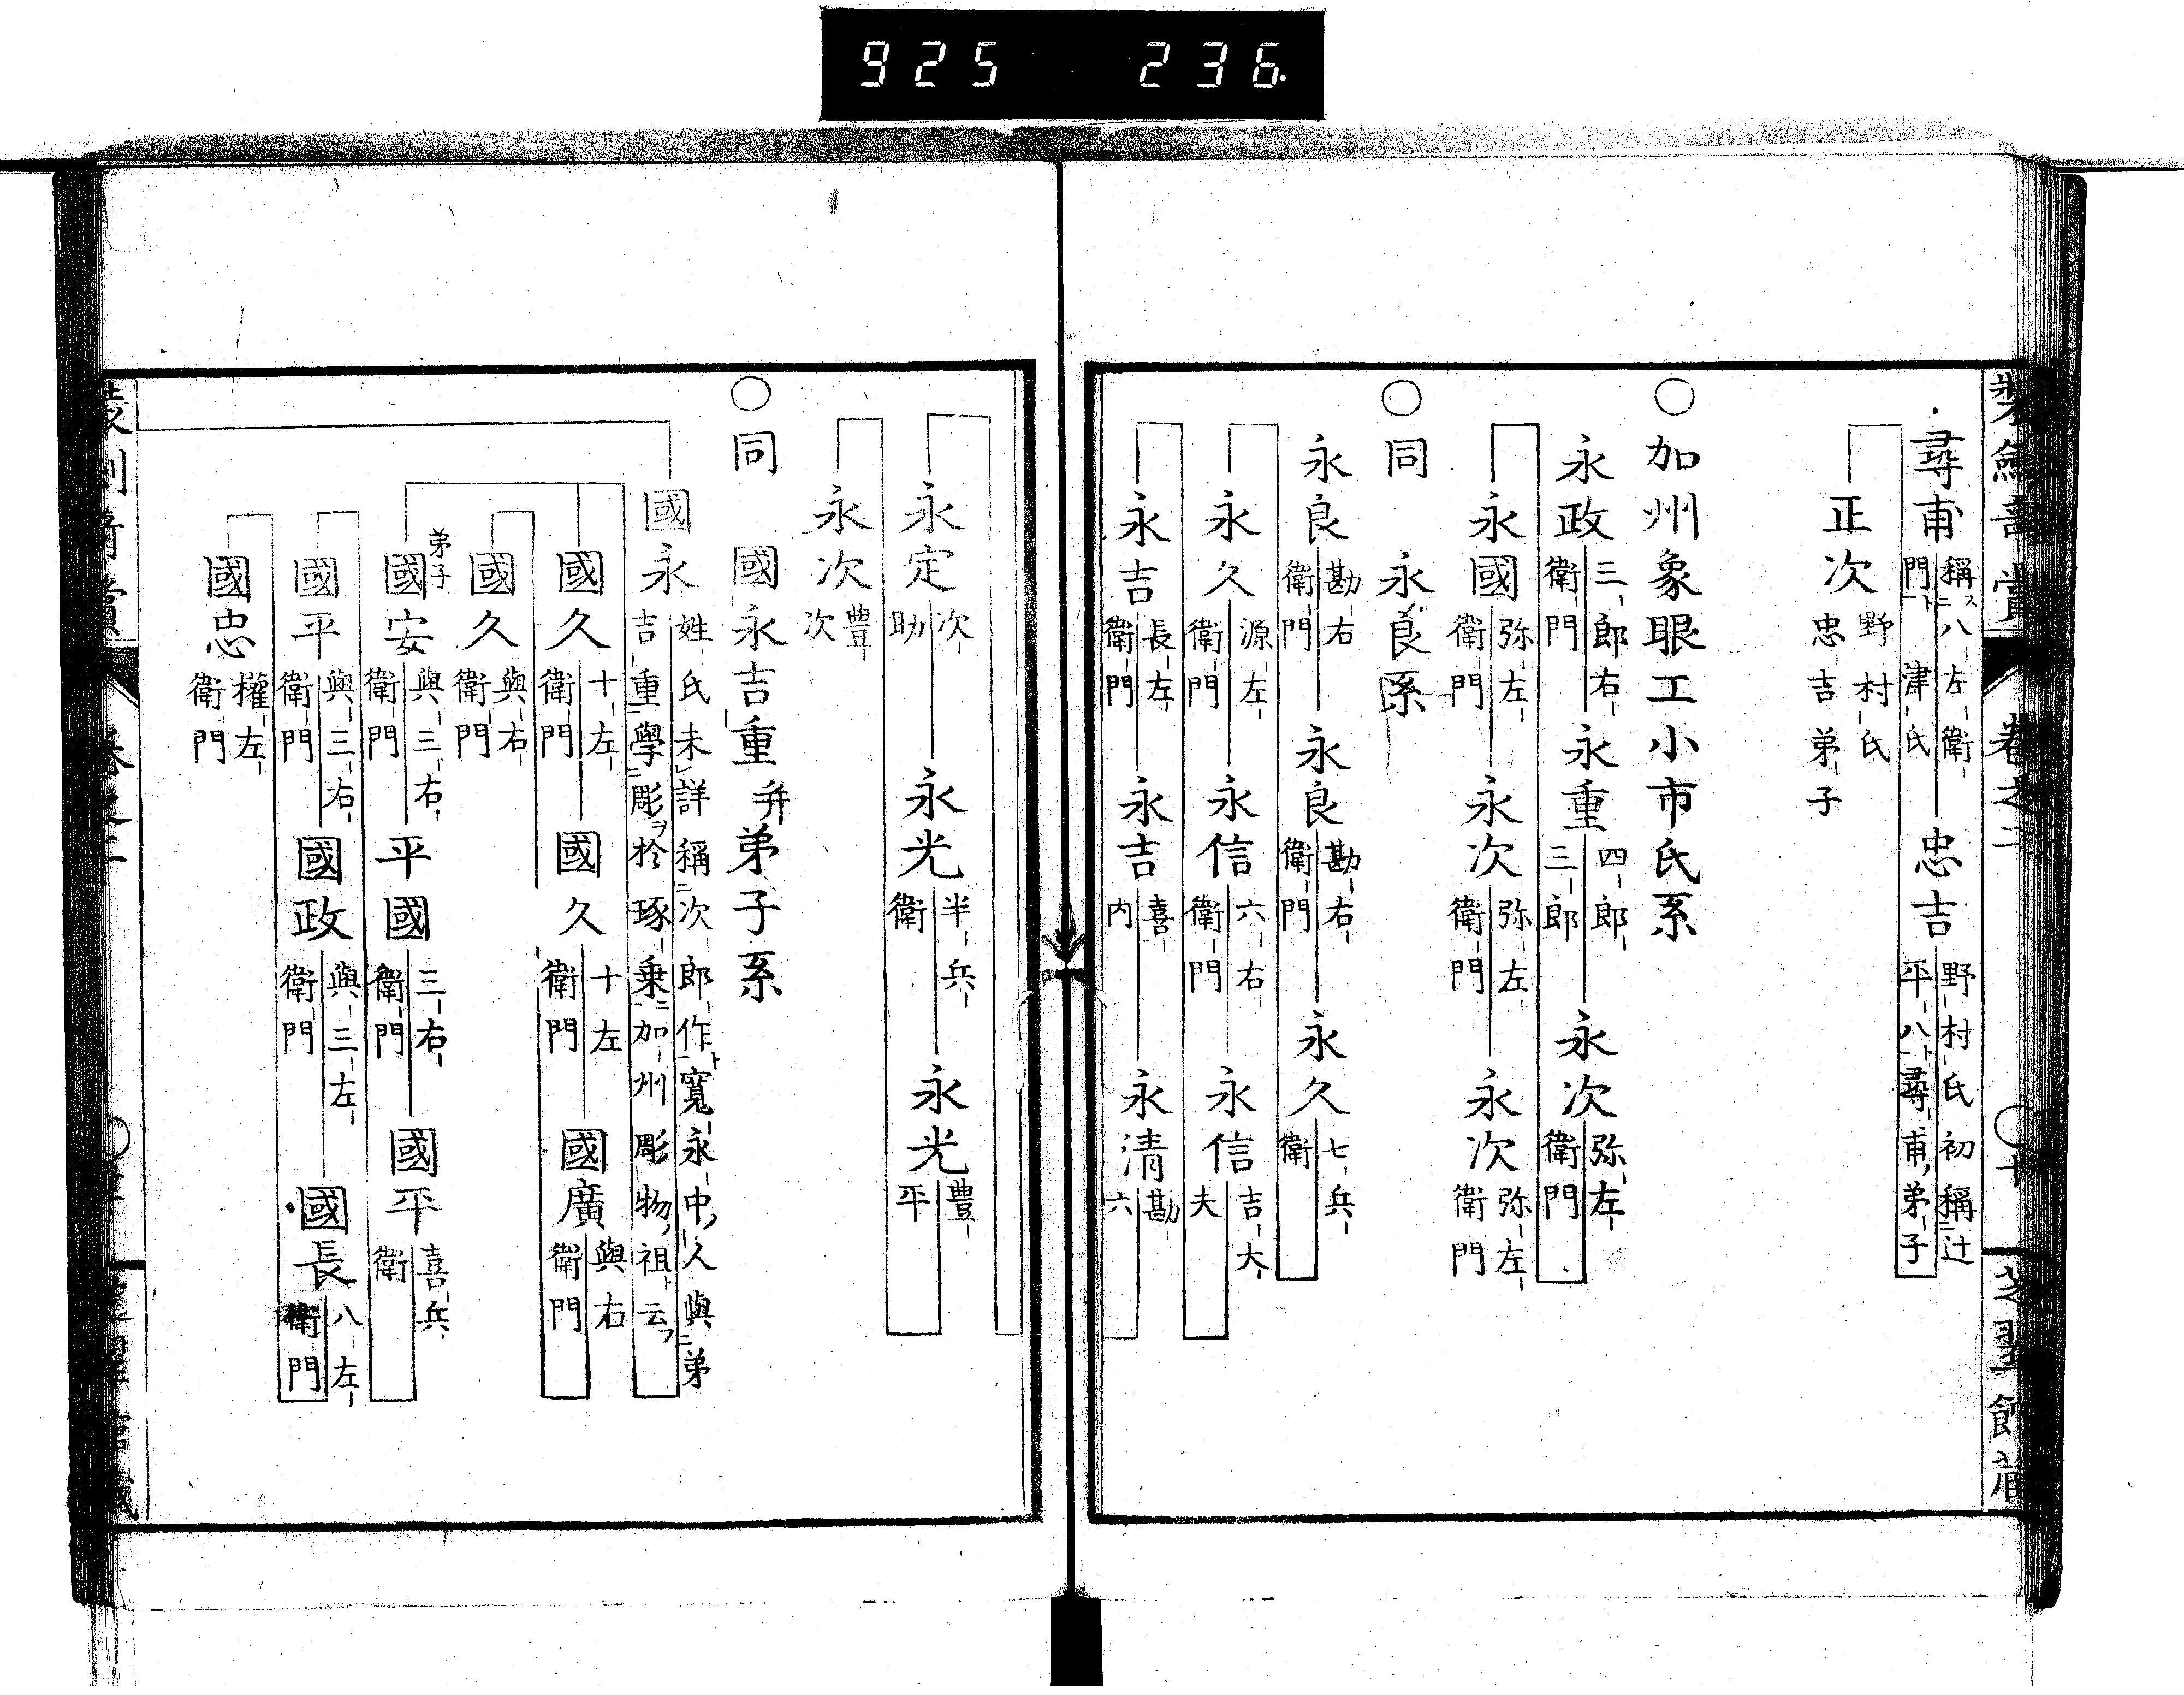 925 236
尋甫 稱ス八左衛門ト 津氏 忠吉 野村氏初稱辻平八ト尋甫弟子
正次 野村氏忠吉弟子
○加州象眼工小市氏系
永政 三郎右衛門 永重 四郎三郎 永次 弥左衛門
永國 弥左衛門 永次 弥左衛門 永次 弥左衛門
○同 永良系
永良 勘右衛門 永良 勘右衛門 永久 七兵衛
永久 源左衛門 永信 六右衛門 永信 吉大夫
永吉 長左衛門 永吉 喜内 永清 勘六
永定 次助 永光 半兵衛 永光 豊平
永次 豊次
○同 國永吉重并弟子系
國永 姓氏未詳稱次郎作ト寬永中ノ人與弟吉重學彫ヲ於琢乗加州彫物ノ祖ト云フ
國久 十左衛門 國久 十左衛門 國廣 與右衛門
國久 與右衛門
弟子
國安 與三右衛門 平國 三右衛門 國平 喜兵衛
國平 與三右衛門 國政 與三左衛門 國長 八左衛門
國忠 權左衛門